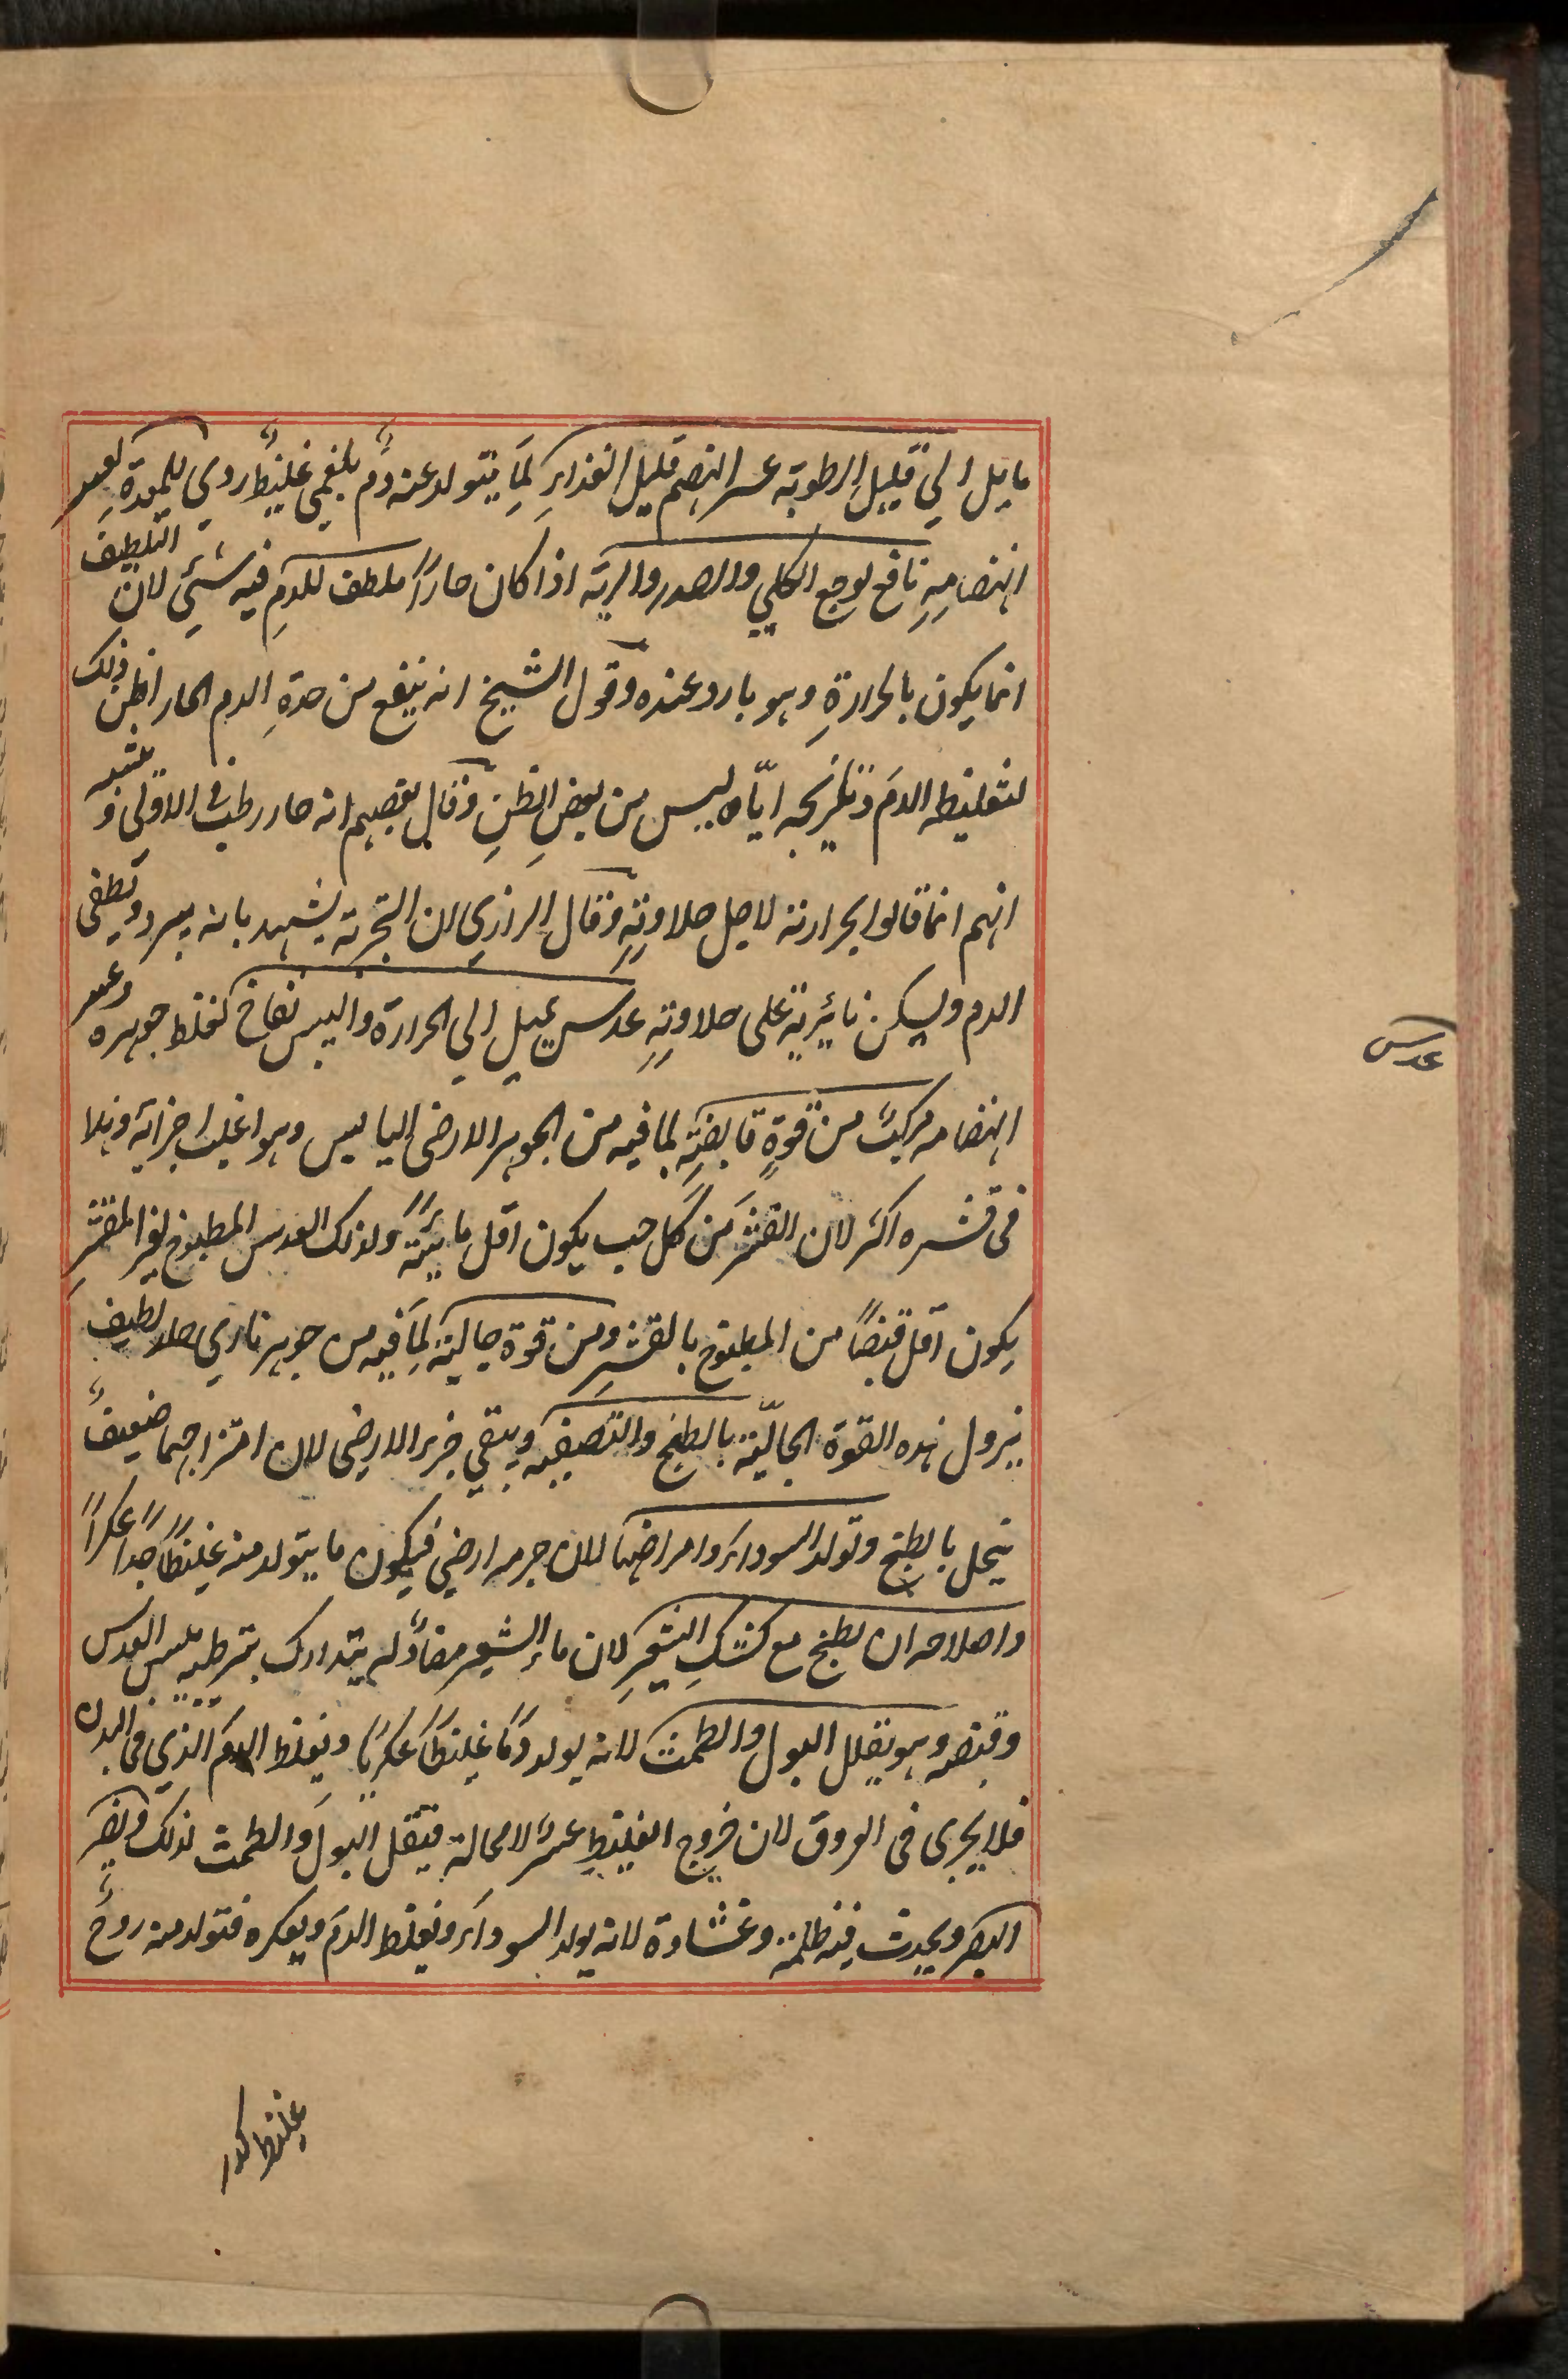 مايل الي قليل الرطوبة عسر الهضم قليل الغذاء لما يتولد عنه دم بلغمي غليظ روي للمعدة لعسر
انهضامه نافع لوجع الكلي والصدر والرية اذا كان حاراً ملطف للدم فيه شئي لان التلطيف
انما يكون بالحرارة وهو بارد عنده وقول الشيخ انه ينفع من حدة الدم الحار اظن ذلك
لتغليظه الدم وتلزيجه ايّاه ليس من بعض الظن وقال بعضهم انه حار رطب في الاولى و يشبه
انهم انما قالوا بحرارته لاجل حلاوته وقال الرازي ان التجربة يشهد بانه يبرد ويطفى
الدم ويسكن نائريته على حلاوته عدس يميل الي الحرارة واليبس نفاخ لغلظ جوهره وعسر
انهضامه مركب من قوة قابضة لما فيه من الجوهر الارضى اليابس وهو اغلب اجزائه وهذا
فى قشره اكثر لان القشر من كل حب يكون اقل مائية ولذلك العدس المطبوخ بغير المقشر
يكون اقل قبضاً من المطبوخ بالقشر ومن قوة جالية لما فيه من جوهر نارى حار لطيف
يزول هذه القوة الجاليّة بالطبخ والتصفية ويبقي جزء الارضى لان امتزاجهما ضعيف
يتحل بالطبخ وتولد السوداء وامراضها لان جرمه ارضي فيكون ما يتولد منه غليظاً جداً عكراً
واصلاحه ان يطبخ مع كشك الشعير لان ماء الشعير مضاد له يتدارك بترطيبه يبس العدس
وقبضه وهو يقلل البول والطمث لانه يولد دماً غليظاً عكرياً ويغلظ الدم الذي فى البدن
فلا يجرى فى العروق لان خروج الغليظ عسر لا محالة فيقل البول والطمث لذلك ويضر
البصر ويحدث فيه ظلمة وغشاوة لانه يولد السوداء ويغلظ الدم ويعكره فتولد منه روح
عدس
غليظ كدر